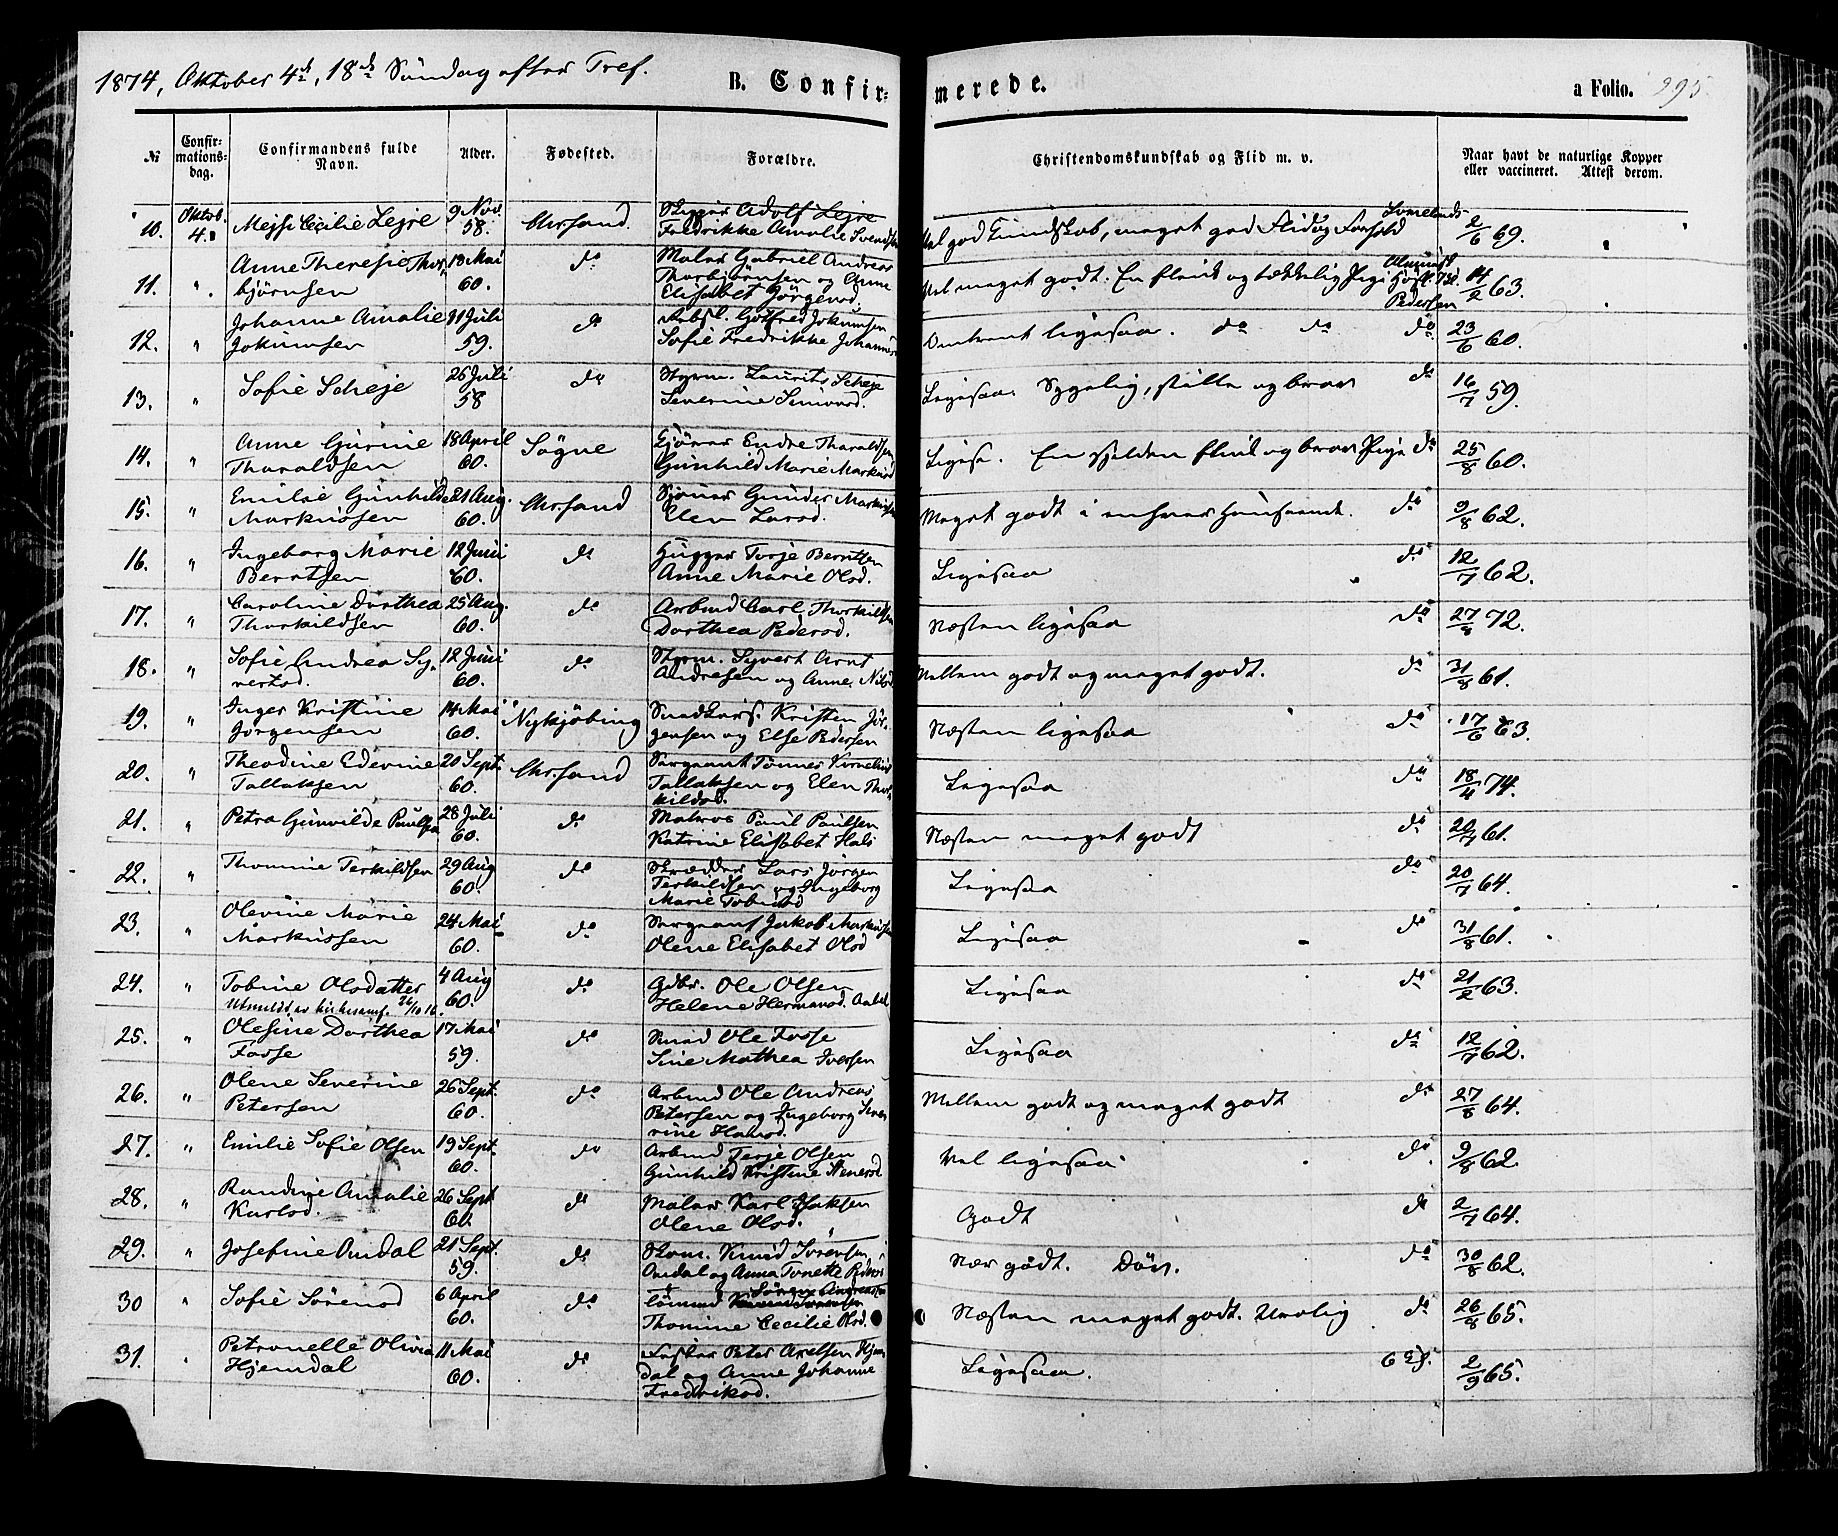 1874, Oktober 4de, 18de Søndag efter Tref.
B. Confirmerede.
a Folio. 295
№ Confirmationsdag. Confirmandens fulde Navn. Alder. Fødested. Forældre. Christendomskundskab og Flid m. v. Naar havt de naturlige Kopper eller vaccineret. Attest derom.
10. Oktob. 4. Cecilie Lejre 9 Nov. 58. Chrsand. Skipper Adolf Lejre
Fredrikke Amalie Svendsen Vel god Kundskab, meget god Flid og Forhold 2/6 69.
11. " Anne Theresie Thor- 13 Mai Do Maler Gabriel Andreas
bjørnsen 60. Thorbjørnsen og Anne
Elisabet Jørgensd. Vel meget godt. En flink og tækkelig Pige 14/2 63.
Pedersen
12. " Johanne Amalie 11 Juli do Arbsl. Gotfred Jokumsen
Jokumsen 59. Sofie Fredrikke Omtrent ligesaa. do do do 23/6 60.
13. " Sofie Scheje 26 Juli 58 do Styrm. Laurits Scheje
Severine Ligesaa. Sygelig, stille og brav do 16/7 59.
14. " Anne Gurine 18 April Søgne Endre Tharaldsen
Tharaldsen 60. Gunhild Marie En sjelden flink og brav Pige do 25/8 60.
15. " Emilie Gunhilde 21 Aug. Chrsand Gunder Markussen
Markussen 60. Elen Larsd. Meget godt i enhver Henseende. do 9/8 62.
16. " Ingeborg Marie 12 Juni do Terje Berntsen
Berntsen 60. Anne Marie Olsd. Ligesaa do 12/7 62.
17. " Caroline Dorthea 25 Aug. do Arbmd Carl Thorkildsen
Thorkildsen 60. Dorthea Pedersd. Næsten ligesaa do 27/8 72.
18. " Sofie Andrea Sy- 12 Juni do Styrm. Syvert Arnt
vertsd. 60. Andresen og Anne Nilsd Mellem godt og meget godt. do 31/8 61.
19. " Inger Kristine 14 Mai Nykjøbing Kristen Jør-
Jørgensen 60. gensen og Else Pedersen Næsten ligesaa do 17/6 63.
20. " Theodine Edevine 20 Sept. Chr.sand Sergeant Tønnes Kornelius
Tallaksen 60. Tallaksen og Elen Thor-
kildsd. Ligesaa do 18/4 74.
21. " Petra Gunvilde Paulsen 28 Juli 60. do Matros Paul Paulsen
Katrine Elisabet Næsten meget godt do 20/7 61.
22. " Thomine Terkildsen 29 Aug 60. do Skrædder Lars Jørgen
Terkildsen og Ingeborg
Marie Tobiasd Ligesaa do 20/7 64.
23. " Olevine Marie 24 Mai do Sergeant Jakob Markussen
Markussen 60. Olene Elisabet Olsd Ligesaa do 31/8 61.
24. " Tobine Olsdatter 4 Aug 60. do Gdbr. Ole Olsen
Utmeldt av kirkesamf. 26/10 16. Helene Hermansd. Ligesaa do 21/2 63.
25. " Olesine Dorthea 17 Mai do Smed Ole Fosse
Fosse 59. Sine Mathea Iversen Ligesaa do 12/7 62.
26. " Olene Severine 26 Sept. do Arbmd Ole Andreas
Petersen 60. Petersen og Ingeborg Seve-
rine Hansd. Mellem godt og meget godt do 27/8 64.
27. " Emilie Sofie Olsen 19 Sept. 60. do Arbmd Terje Olsen
Gunhild Kristine Vel ligesaa do 9/8 62.
28. " Randine Amalie 26 Sept do Maler Karl Isaksen
Karlsd. 60. Olene Olsd. Godt do 2/7 64.
29. " Josefine Omdal 21 Sept. 59. do Skom. Knud Sørensen
Omdal og Anna Tonette Nær godt. Døv. do 30/8 62.
30 " Sofie Sørensd 6 April 60. do Tømmd Søren Andreassen
Thomine Cecilie Olsd. Næsten meget godt. Urolig do 26/8 65.
31. " Petronelle Olivia 11 Mai do Peter Axelsen Hjem-
Hjemdal 60. dal og Anne Johanne
Fredriksd. Ligesaa. 2/9 65.